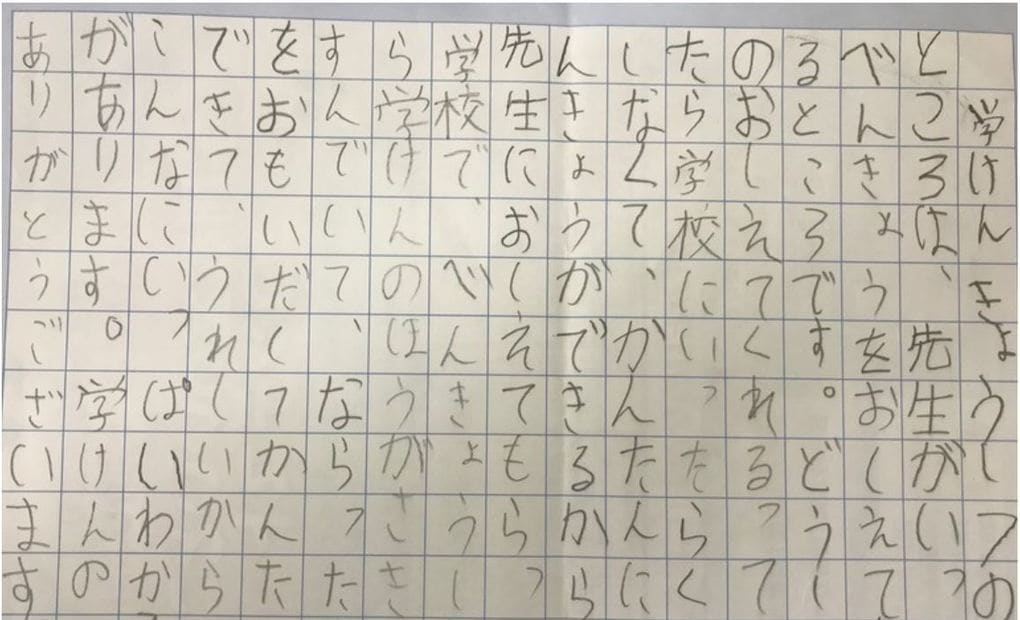 学けんきょうしつの
ところは、先生がいっ
べんきょうをおしえて
るところです。どうし
のおしえてくれるって
たら学校にいったらく
しなくて、かんたんに
んきょうができるから
先生におしえてもらっ
学校で、べんきょうし
ら学けんのほうがささ
すんでいて、ならった
をおもいだしてかんた
できて、うれしいから
こんなにいっぱいわか
があります。学けんの
ありがとうございます